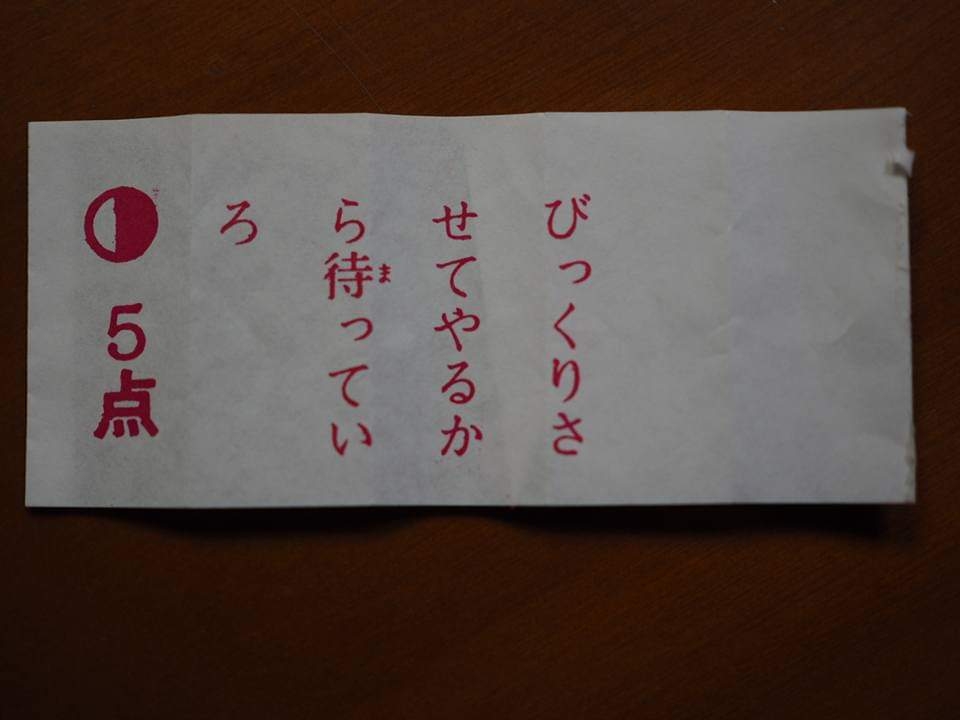 びっくりさ
せてやるか
ら待ってい
ろ
5点